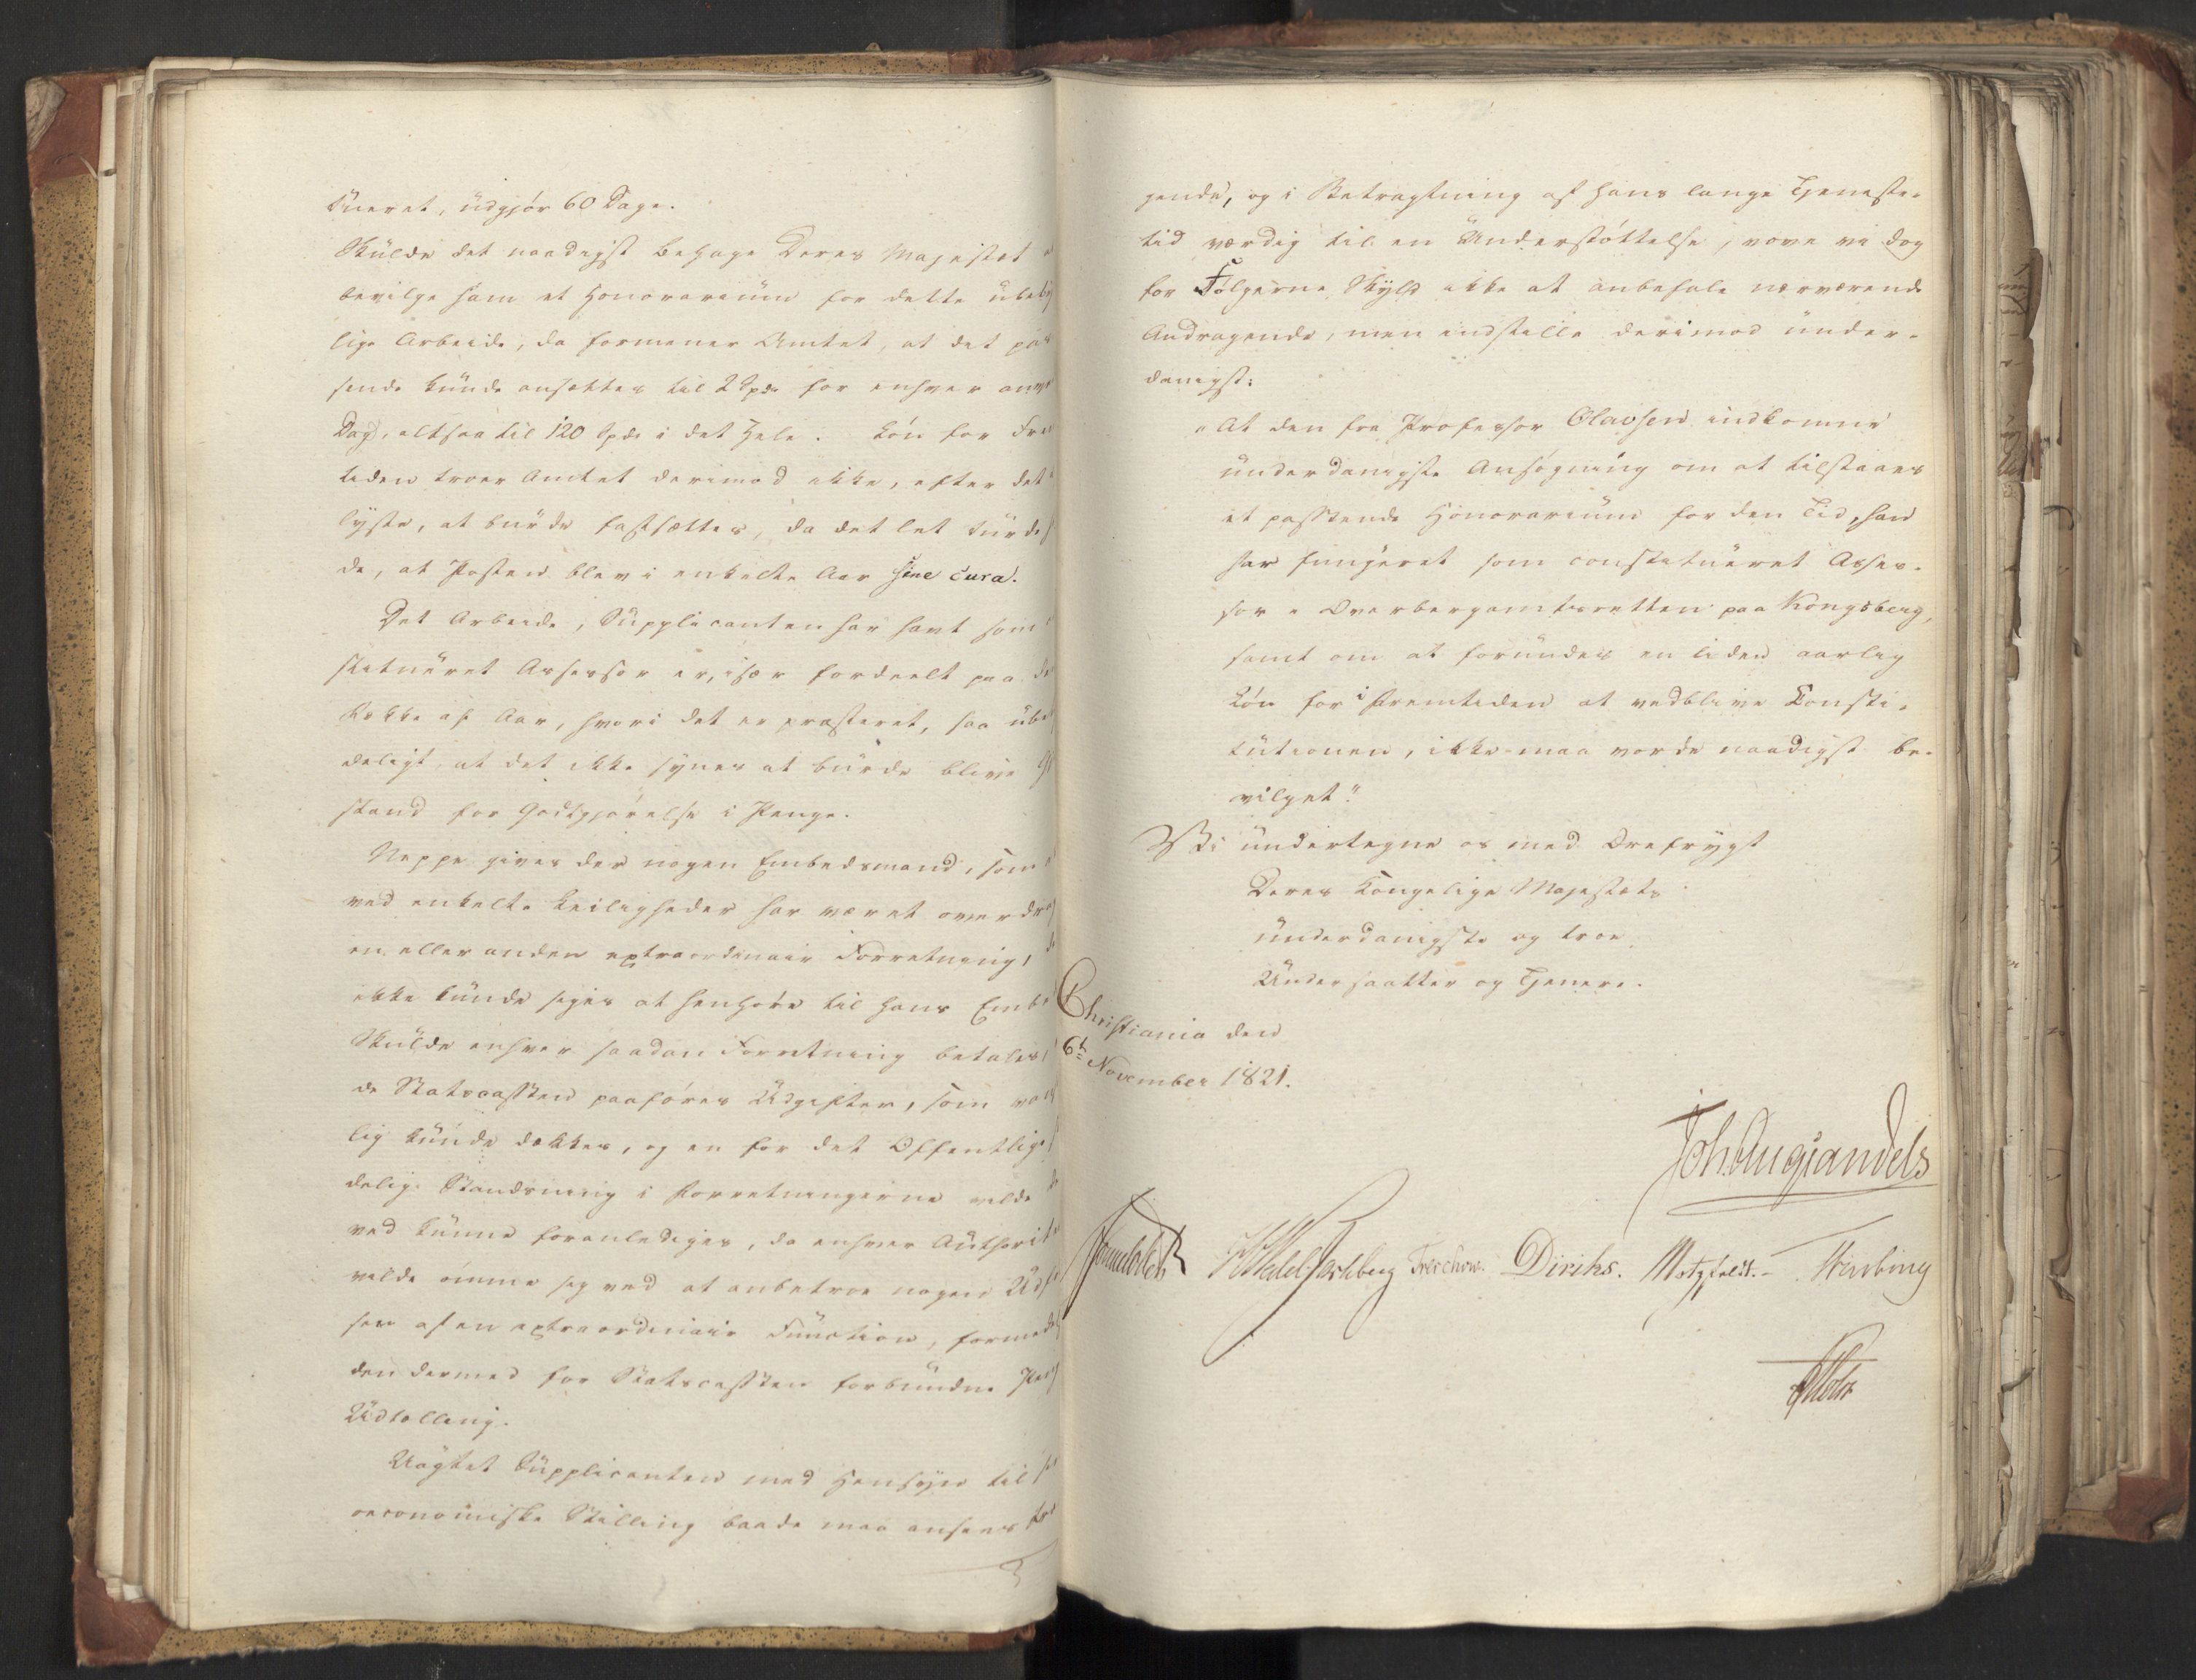 tueret, udgjør 60 Dage.
Skulde det naadigst behage Deres Majestet
bevilge ham et Honorarium for dette ubety
lige Arbeide, da formener Amtet, at det pas
sende kunde ansættes til 2 Spd. for enhver anv
Dag, altsaa til 120 Spd. i det Hele. Løn for Frem
tiden troer Amtet derimod ikke, efter det
lyste, at burde fastsættes, da det let turde
de, at Posten blev i enkelte Aar sine cura.
Det Arbeide, Supplicanten har havt som
stitueret Assessor er, især fordeelt paa de
Række af Aar, hvori det er præsteret, saa ube
deligt, at det ikke synes at burde blive G
stand for Godtgjørelse i Penge.
Neppe gives der nogen Embedsmand, som
ved enkelte Leiligheder har været overdra
en eller anden extraordinair Forretning,
ikke kunde siges at henhøre til hans Embe
Skulde enhver saadan Forretning betales,
de Statscassen paaføres Udgifter, som van
lig kunde dækkes, og en for det Offentlige
delig Standsning i Forretningerne vilde
ved kunne foranlediges, da enhver Authorite
vilde ømme sig ved at anbetroe nogen Udfø
sen af en extraordinair Function, formedel
den dermed for Statscassen forbundne Peng
Udtælling.
Uagtet Supplicanten med Hensyn til
oeconomiske Stilling baade maa ansees træ
gende, og i Betragtning af hans lange Tjeneste-
tid værdig til en Understøttelse, vove vi dog
for Følgerne Skyld ikke at anbefale nærværende
Andragende, men indstille derimod under-
danigst:
"At den fra Professor Olavsen indkomne
underdanigste Ansøgning om at tilstaaes
et passende Honorarium for den Tid, han
har fungeret som constitueret Asses-
sor i Overbergamtsretten paa Kongsberg,
samt om at forundes en liden aarlig
Løn for i Fremtiden at vedblive Consti-
tutionen, ikke maa vorde naadigst be-
vilget."
Vi undertegne os med Ærefrygt
Deres Kongelige Majestæts
underdanigste og troe
Undersaatter og Tjenere.
Christiania den
6te November 1821.
Joh. Aug. Sandels
Sommerhielm H Wedel Jarlsberg Treschow. Diriks. Motzfeldt. Fasting